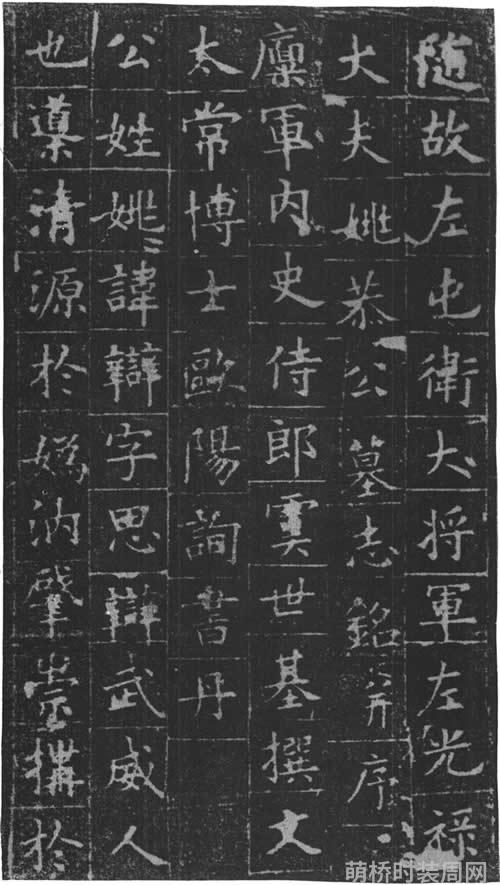 随故左屯衛大将軍左光祿
大夫姚恭公墓志銘并序
稟軍内史侍郎虞世基撰文
太常博士歐陽詢書丹
公姓姚諱辯字思辯武威人
也導清源於嬀汭肇崇構於
萌桥时装周网